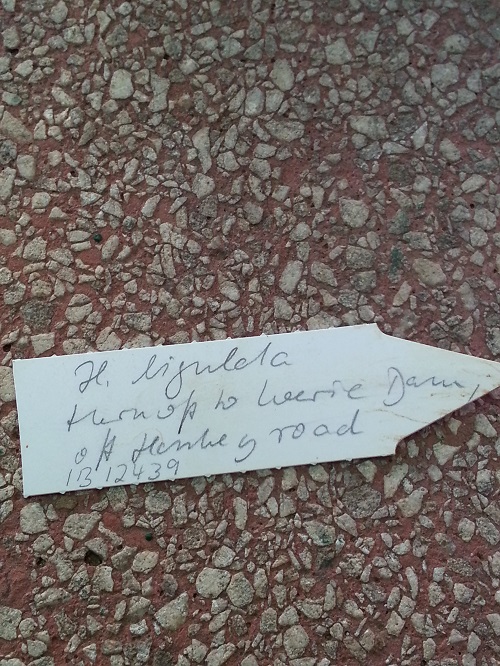 H. ligulata
turnoff to Loerie Dam,
off Hankey road
IB 12439